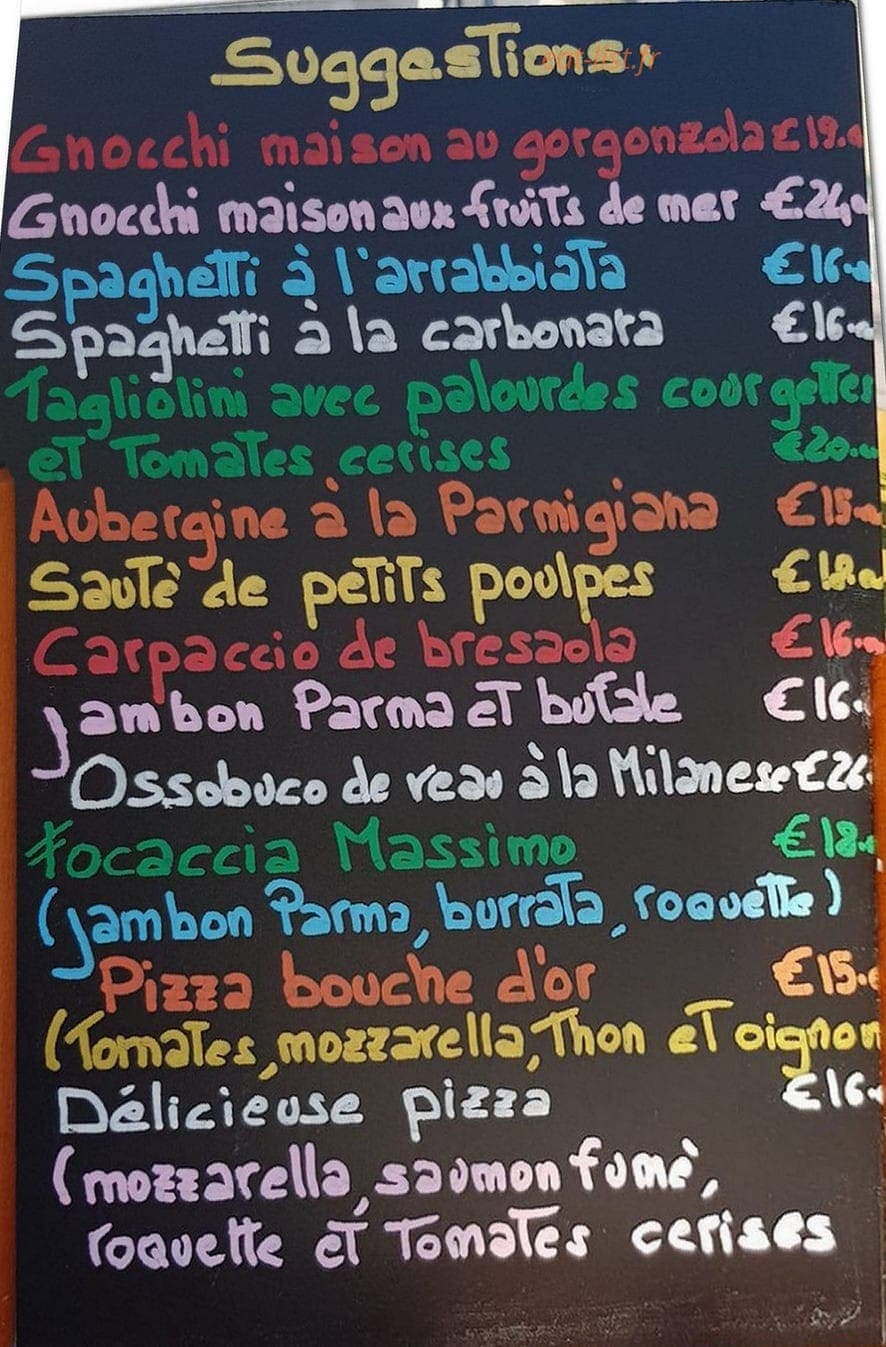 Suggestions
Gnocchi maison au gorgonzola €19.
Gnocchi maison aux fruits de mer €24,
Spaghetti à l'arrabbiata €16.
Spaghetti à la carbonara €16.
Tagliolini avec palourdes courgettes
et Tomates cerises €20.
Aubergine à la Parmigiana €15.
Sautè de petits poulpes €18.
Carpaccio de bresaola €16.
jambon Parma et bufale €16.
Ossobuco de veau à la Milanese €26.
Focaccia Massimo €18.
(jambon Parma, burrata, roquette)
Pizza bouche d'or €15.
(Tomates, mozzarella, Thon et oignon
Délicieuse pizza €16.
(mozzarella, saumon fumè,
roquette et Tomates cerises